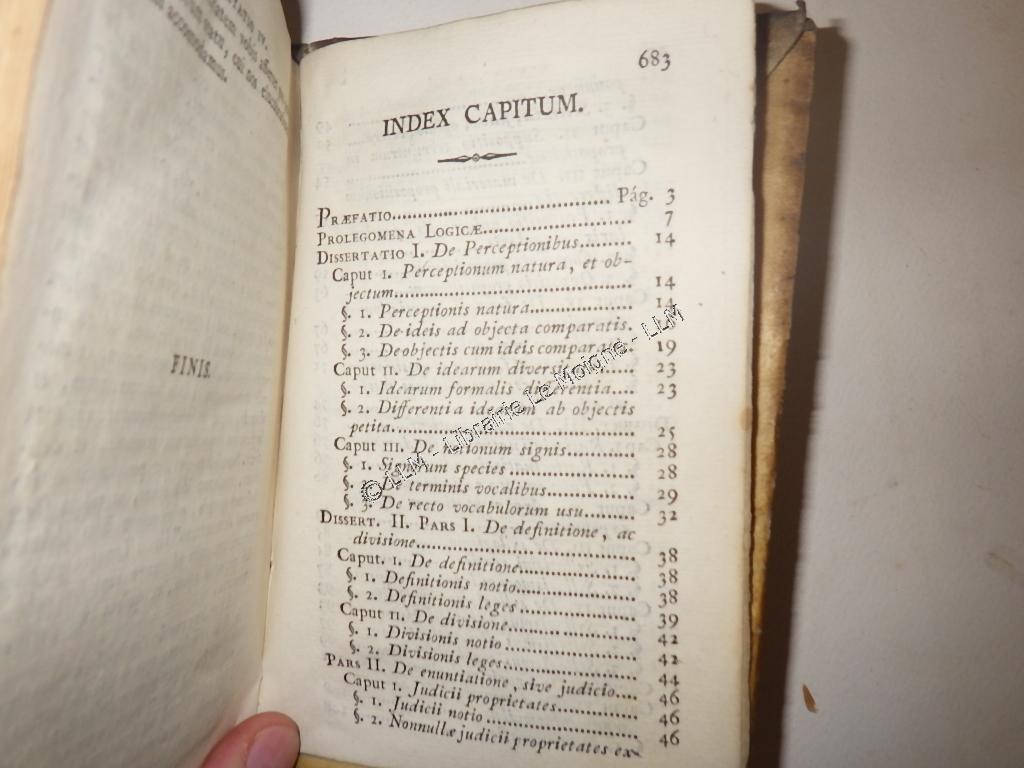 FINIS.
683
INDEX CAPITUM.
PRÆFATIO.......... Pág. 3
PROLEGOMENA LOGICÆ.......... 7
DISSERTATIO I. De Perceptionibus.......... 14
Caput I. Perceptionum natura, et ob-
jectum.......... 14
§. 1. Perceptionis natura.......... 14
§. 2. De ideis ad objecta comparatis.
§. 3. De objectis cum ideis comparatis. 19
Caput II. De idearum diversitate.......... 23
§. 1. Idearum formalis differentia.... 23
§. 2. Differentia idearum ab objectis
petita.......... 25
Caput III. De notionum signis.......... 28
§. 1. Signorum species.......... 28
§. 2. De terminis vocalibus.......... 29
§. 3. De recto vocabulorum usu.......... 32
DISSERT. II. PARS I. De definitione, ac
divisione.......... 38
Caput. I. De definitione.......... 38
§. 1. Definitionis notio.......... 38
§. 2. Definitionis leges.......... 39
Caput II. De divisione.......... 42
§. 1. Divisionis notio.......... 42
§. 2. Divisionis leges.......... 44
PARS II. De enuntiatione, sive judicio.... 46
Caput I. Judicii proprietates.......... 46
§. 1. Judicii notio.......... 46
§. 2. Nonnullæ judicii proprietates ex-
© LLM - Librairie Le Moigne - LLM